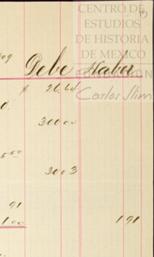 CENTRO DE
ESTUDIOS
DE HISTORIA
DE MEXICO
Debe Haber
FUNDACIÓN
Carlos Slim
300 00
300 3
91
1 00 1 91